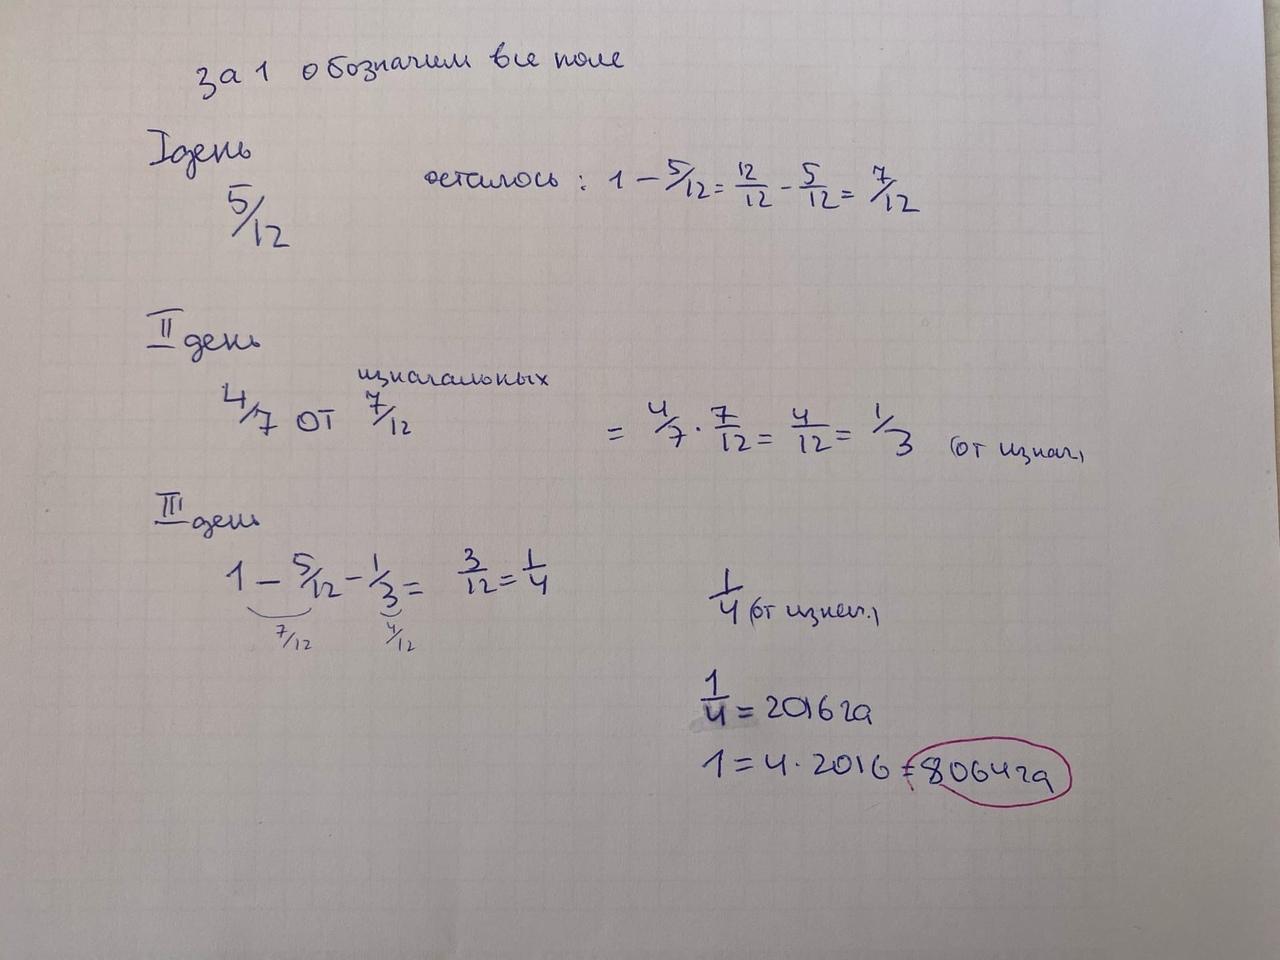 за 1 обозначим все поле
I день
5/12
осталось: 1 - 5/12 = 12/12 - 5/12 = 7/12
II день
изначальных
4/7 от 7/12 = 4/7 · 7/12 = 4/12 = 1/3 (от изнач.)
III день
1 - 5/12 - 1/3 = 3/12 = 1/4
7/12 4/12
1/4 (от изнач.)
1/4 = 2016 га
1 = 4 · 2016 = 8064 га